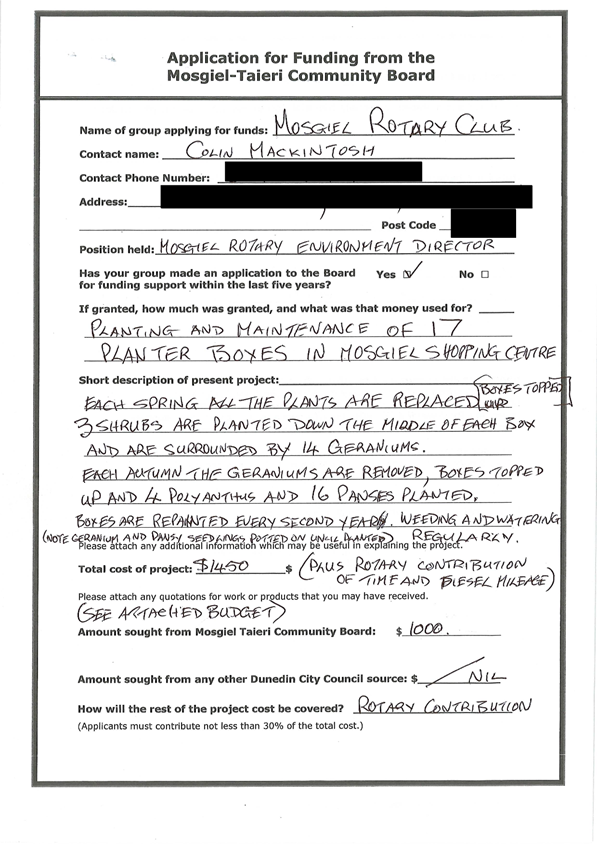 Application for Funding from the
Mosgiel-Taieri Community Board
Name of group applying for funds: MOSGIEL ROTARY CLUB.
Contact name: COLIN MACKINTOSH
Contact Phone Number:
Address:
Post Code
Position held: MOSGIEL ROTARY ENVIRONMENT DIRECTOR
Has your group made an application to the Board Yes ☑ No ☐
for funding support within the last five years?
If granted, how much was granted, and what was that money used for?
PLANTING AND MAINTENANCE OF 17
PLANTER BOXES IN MOSGIEL SHOPPING CENTRE
Short description of present project:
EACH SPRING ALL THE PLANTS ARE REPLACED [BOXES TOPPED
3 SHRUBS ARE PLANTED DOWN THE MIDDLE OF EACH BOX
AND ARE SURROUNDED BY 14 GERANIUMS.
EACH AUTUMN THE GERANIUMS ARE REMOVED, BOXES TOPPED
UP AND 4 POLYANTHUS AND 16 PANSES PLANTED.
BOXES ARE REPAINTED EVERY SECOND YEAR. WEEDING AND WATERING
(NOTE GERANIUM AND PANSY SEEDLINGS POTTED ON UNTIL PLANTED) REGULARLY.
Please attach any additional information which may be useful in explaining the project.
Total cost of project: $1450 $ (PLUS ROTARY CONTRIBUTION
OF TIME AND DIESEL MILEAGE)
Please attach any quotations for work or products that you may have received.
(SEE ATTACHED BUDGET)
Amount sought from Mosgiel Taieri Community Board: $ 1000.
Amount sought from any other Dunedin City Council source: $ NIL
How will the rest of the project cost be covered? ROTARY CONTRIBUTION
(Applicants must contribute not less than 30% of the total cost.)